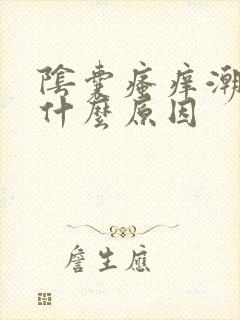 陰囊瘙癢潮
什麼原因
詹生應